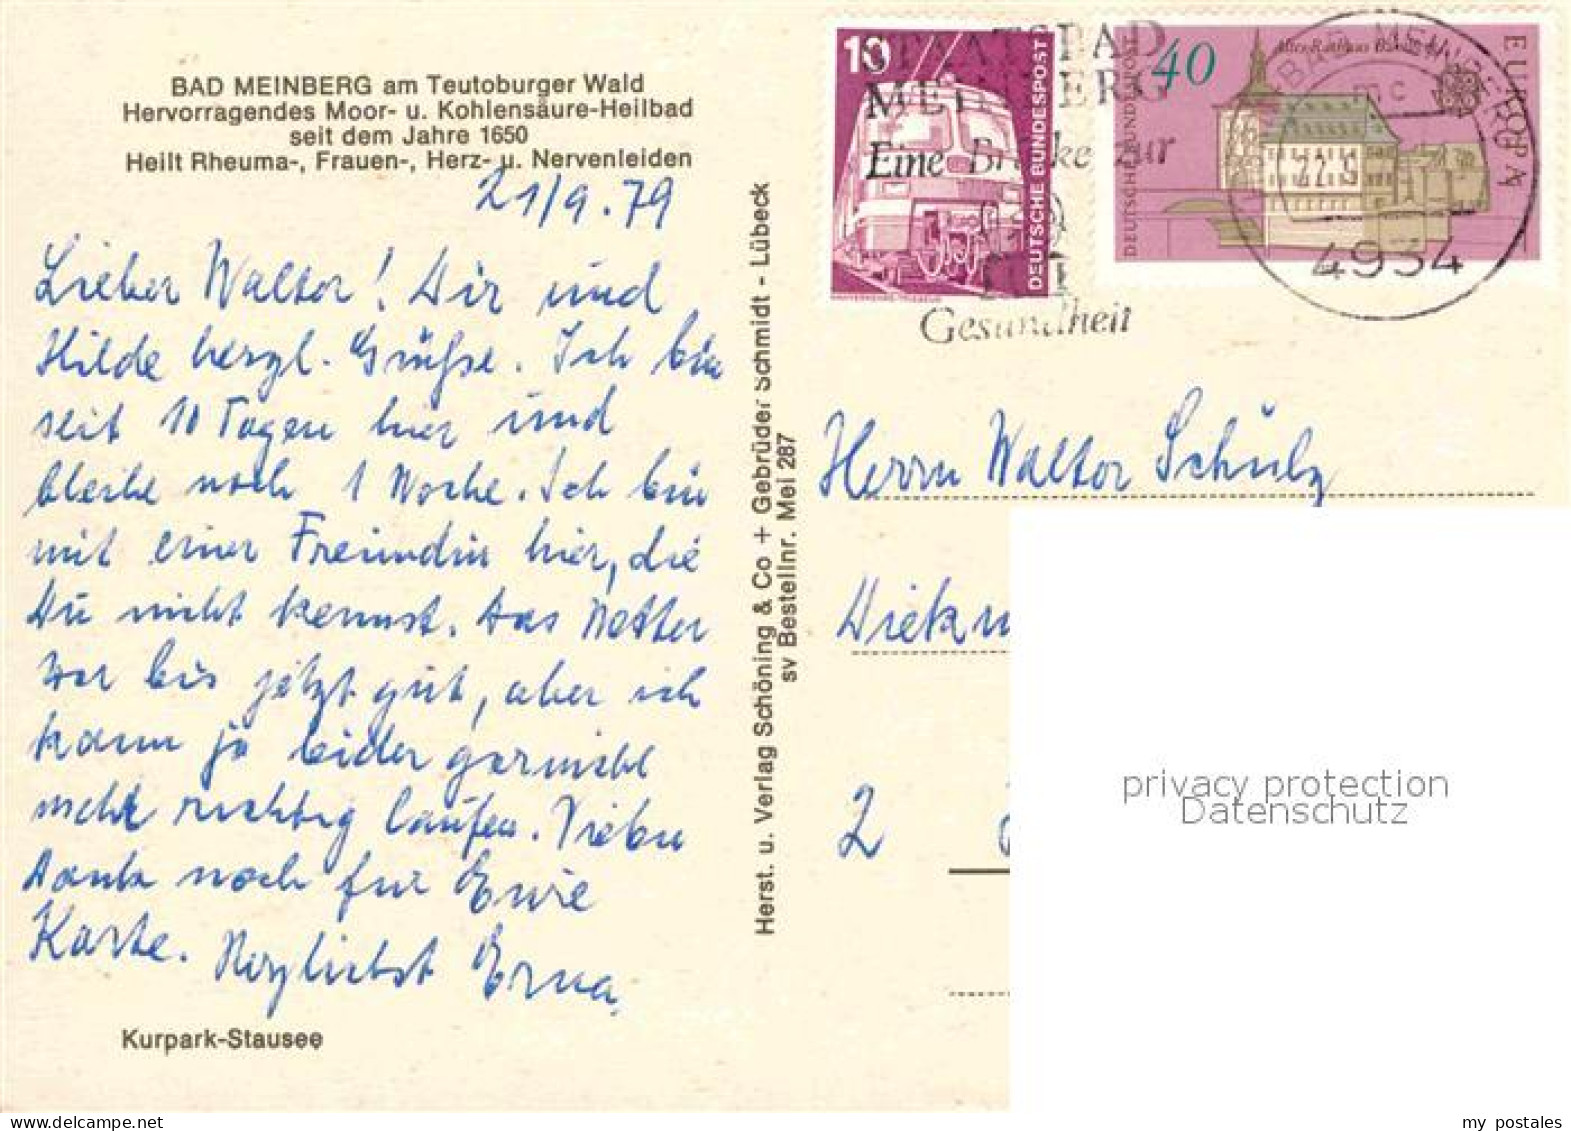 BAD MEINBERG am Teutoburger Wald
Hervorragendes Moor- u. Kohlensäure-Heilbad
seit dem Jahre 1650
Heilt Rheuma-, Frauen-, Herz- u. Nervenleiden
21/9.79
Lieber Walter! Dir und
Hilde herzl. Grüße. Ich bin
seit 10 Tagen hier und
bleibe noch 1 Woche. Ich bin
mit einer Freundin hier, die
Du nicht kennst. Das Wetter
war bis jetzt gut, aber ich
kann ja leider garnicht
mehr richtig laufen. Vielen
Dank noch für Eure
Karte. Herzlichst Erna
Kurpark-Stausee
Herst. u. Verlag Schöning & Co + Gebrüder Schmidt - Lübeck
sv Bestellnr. Mei 287
10
DEUTSCHE BUNDESPOST
40
DEUTSCHE BUNDESPOST
EUROPA
STAATSBAD
MEINBERG
Eine Brücke zur
Gesundheit
BAD MEINBERG
mc
4934
Herrn Walter Schulz
2
privacy protection
Datenschutz
my postales